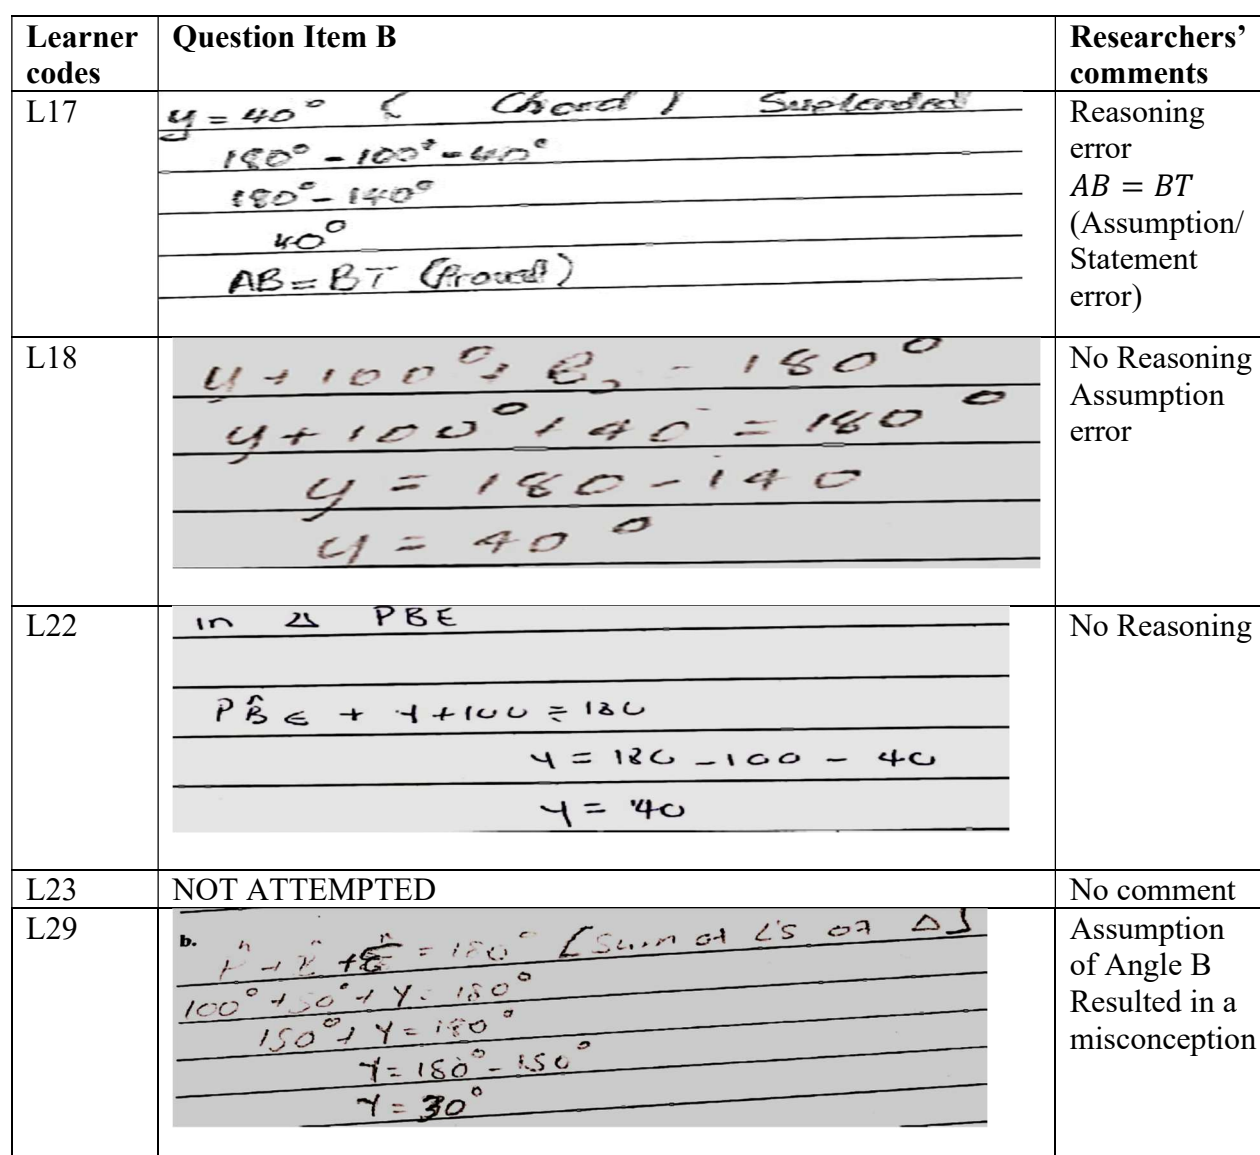 Learner codes
Question Item B
Researchers' comments
L17
y = 40° ( Chord ) Suptended
180° - 100° - 40°
180° - 140°
40°
AB = BT (Proved)
Reasoning
error
AB = BT
(Assumption/
Statement
error)
L18
y + 100° + B₂ = 180°
y + 100° + 40 = 180°
y = 180 - 140
y = 40°
No Reasoning
Assumption
error
L22
in Δ PBE
PB̂E + y + 100 = 180
y = 180 - 100 - 40
y = 40
No Reasoning
L23
NOT ATTEMPTED
No comment
L29
b.
= 180° [Sum of L's of Δ]
100° + 50° + Y = 180°
150° + Y = 180°
Y = 180° - 150°
Y = 30°
Assumption
of Angle B
Resulted in a
misconception